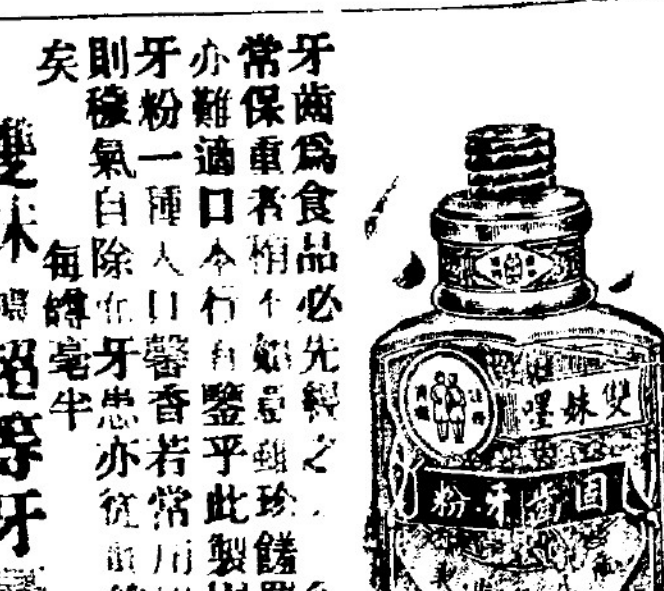 牙齒爲食品必先經之
常保重者稍不如意雖珍饈
亦難適口本行有鑒乎此製
牙粉一種入口馨香若常用
則穢氣自除而牙患亦從
矣
每罇毫半
雙妹嚜超等牙
雙妹嚜
固齒牙粉